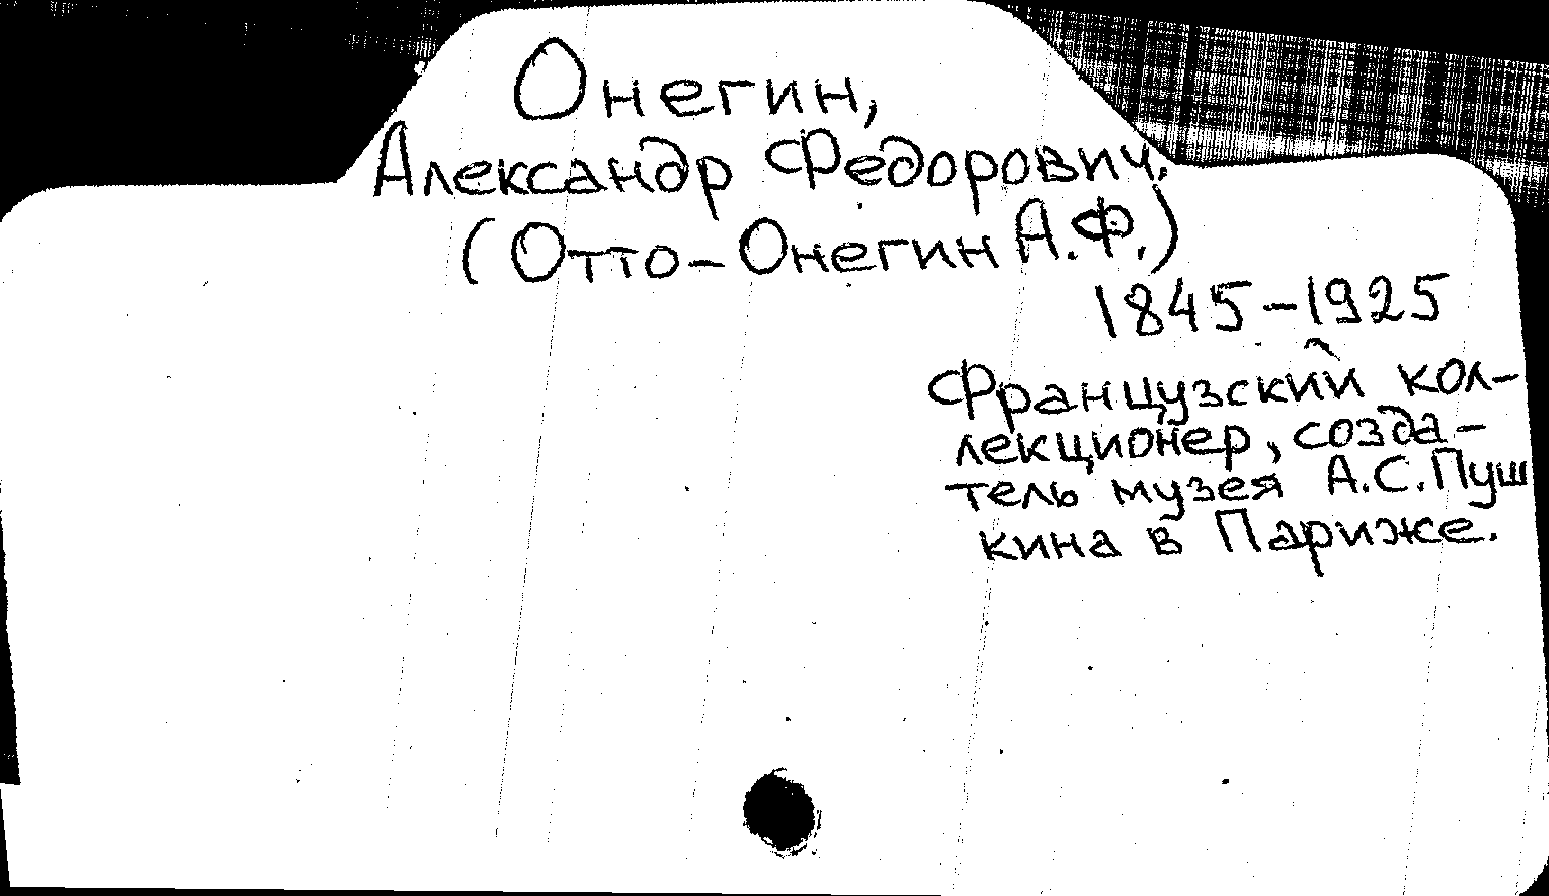 Онегин,
Александр Федорович.
(Отто-Онегин А.Ф.)
1845-1925
Французский кол-
лекционер, созда-
тель музея А.С.Пуш
кина в Париже.